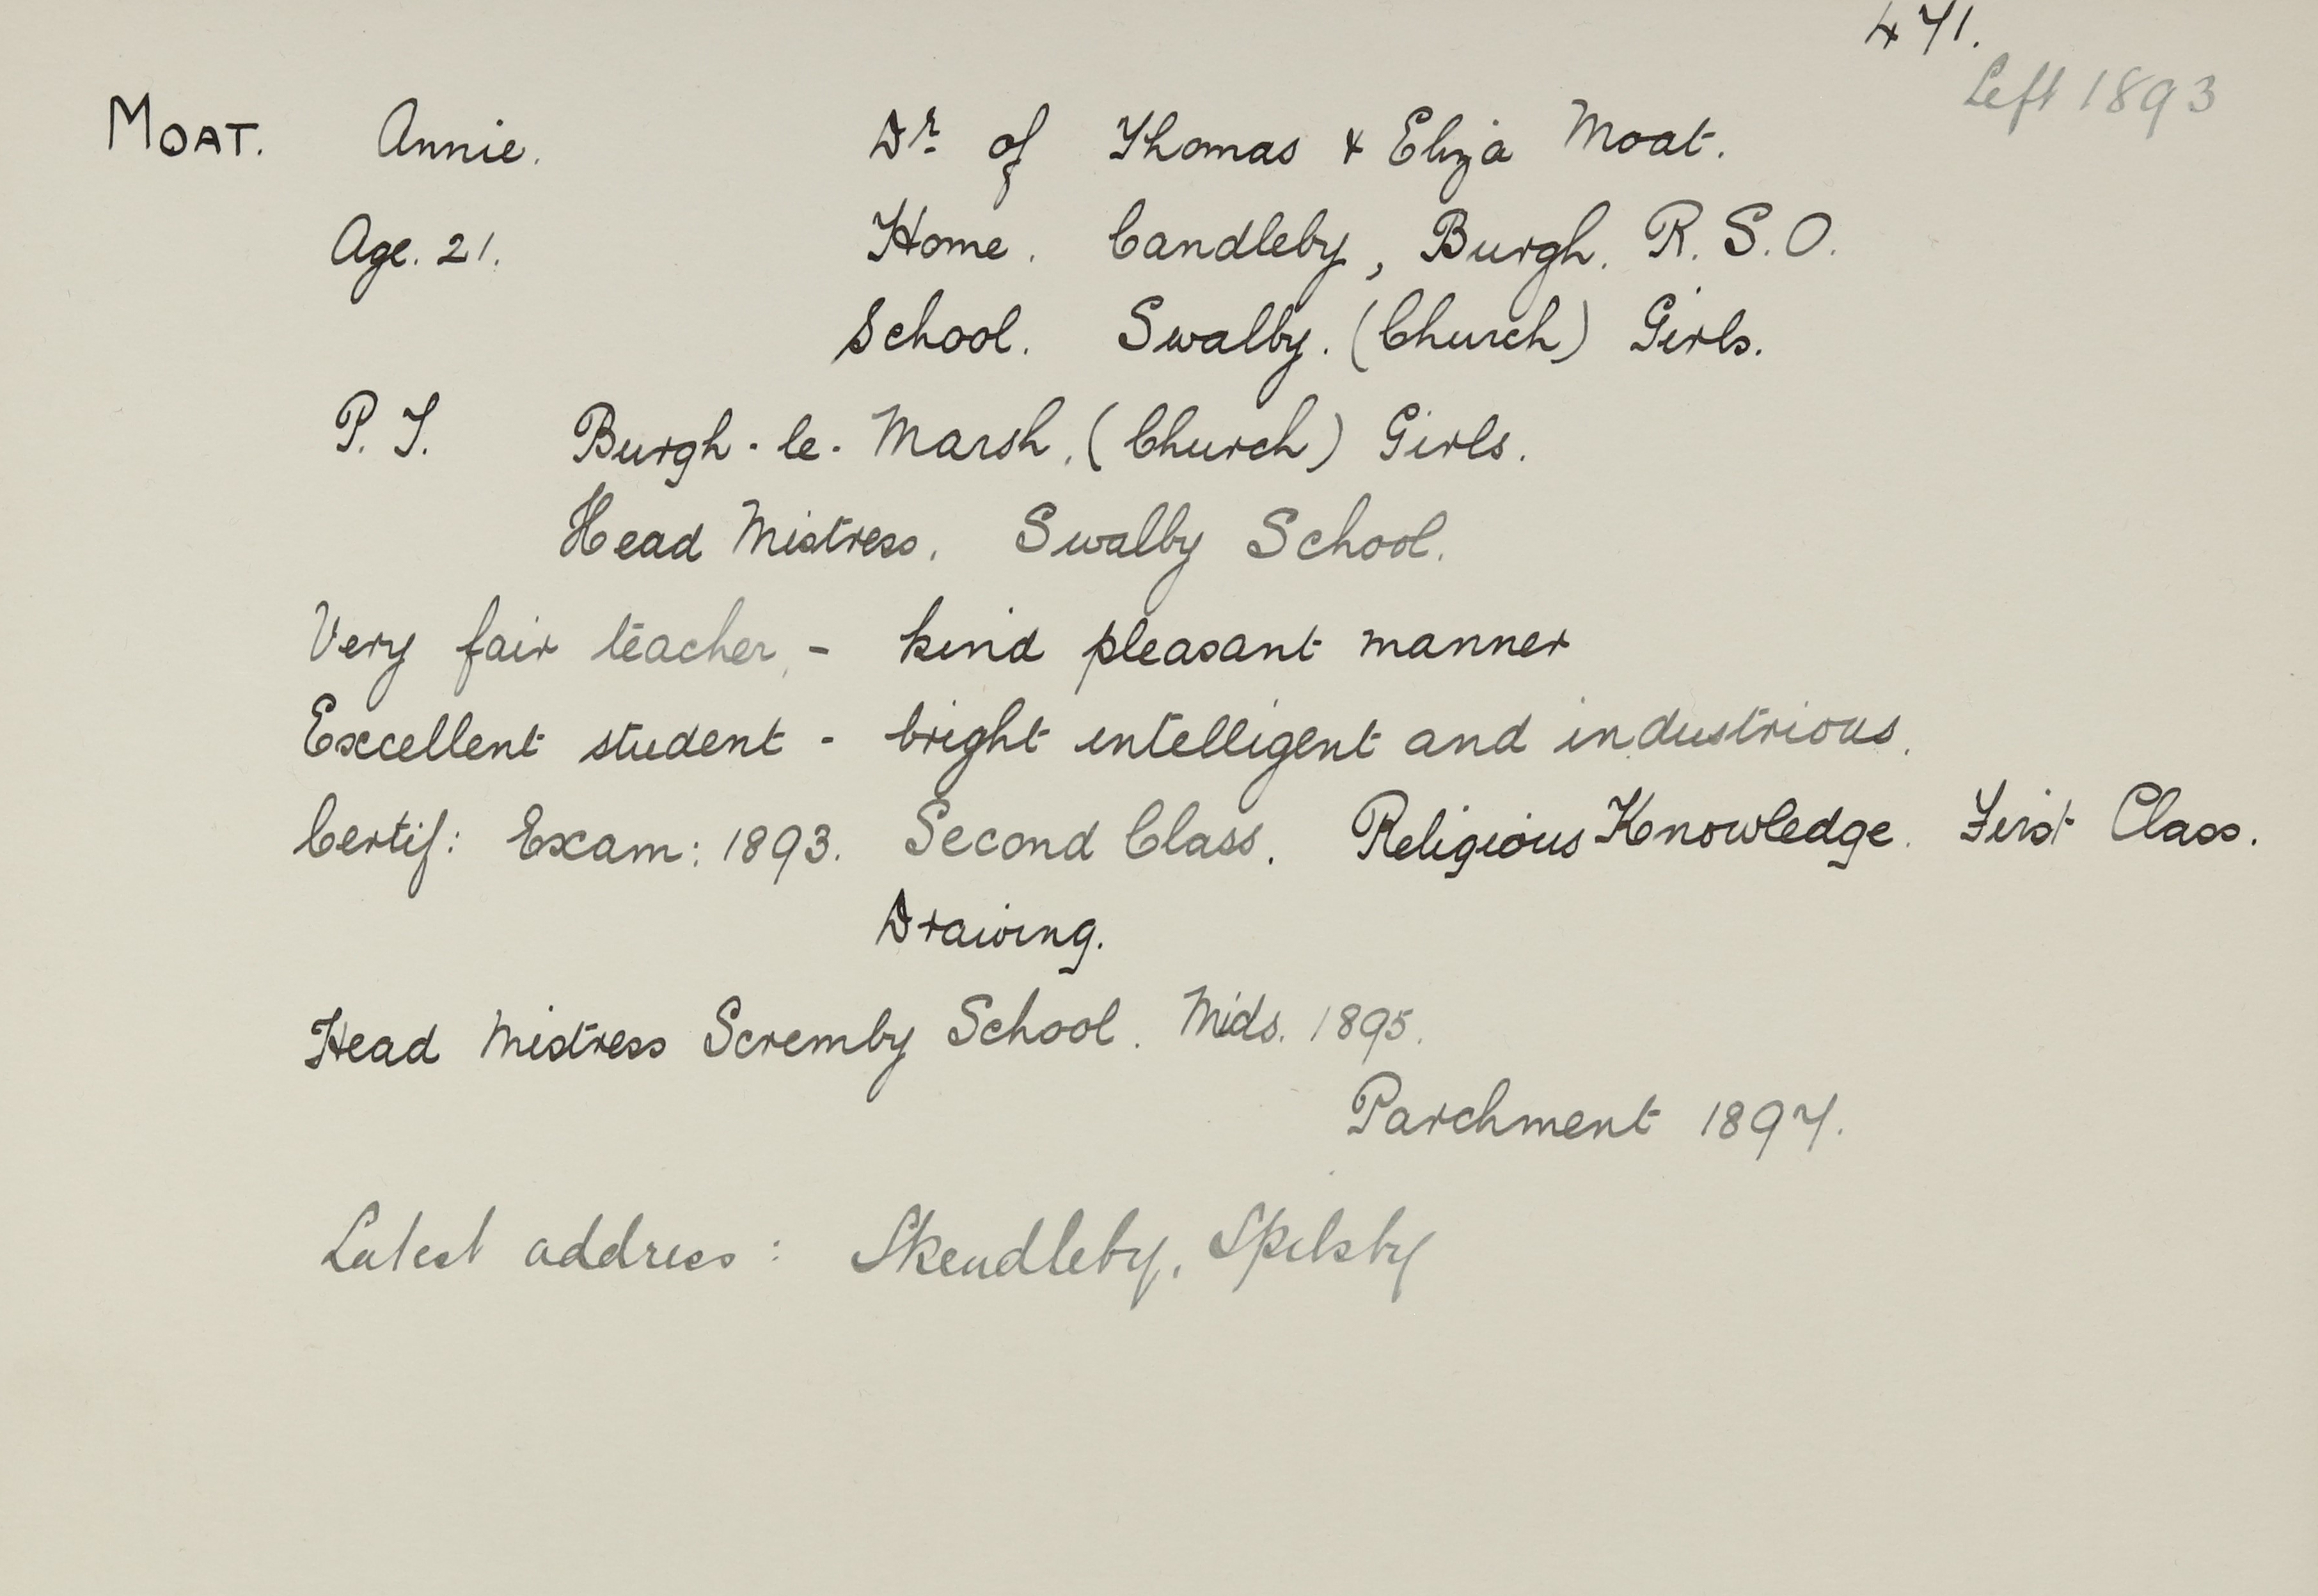 471.
Left 1893
MOAT. Annie. Dr. of Thomas & Eliza Moat.
Age. 21. Home. Candleby, Burgh. R.S.O.
School. Swalby. (Church) Girls.
P. T. Burgh-le-Marsh. (Church) Girls.
Head Mistress. Swalby School.
Very fair teacher, - kind pleasant manner
Excellent student - bright intelligent and industrious.
Certif: Exam: 1893. Second Class. Religious Knowledge. First Class.
Drawing.
Head Mistress Scremby School. Mids. 1895.
Parchment 1897.
Latest address: Skendleby, Spilsby